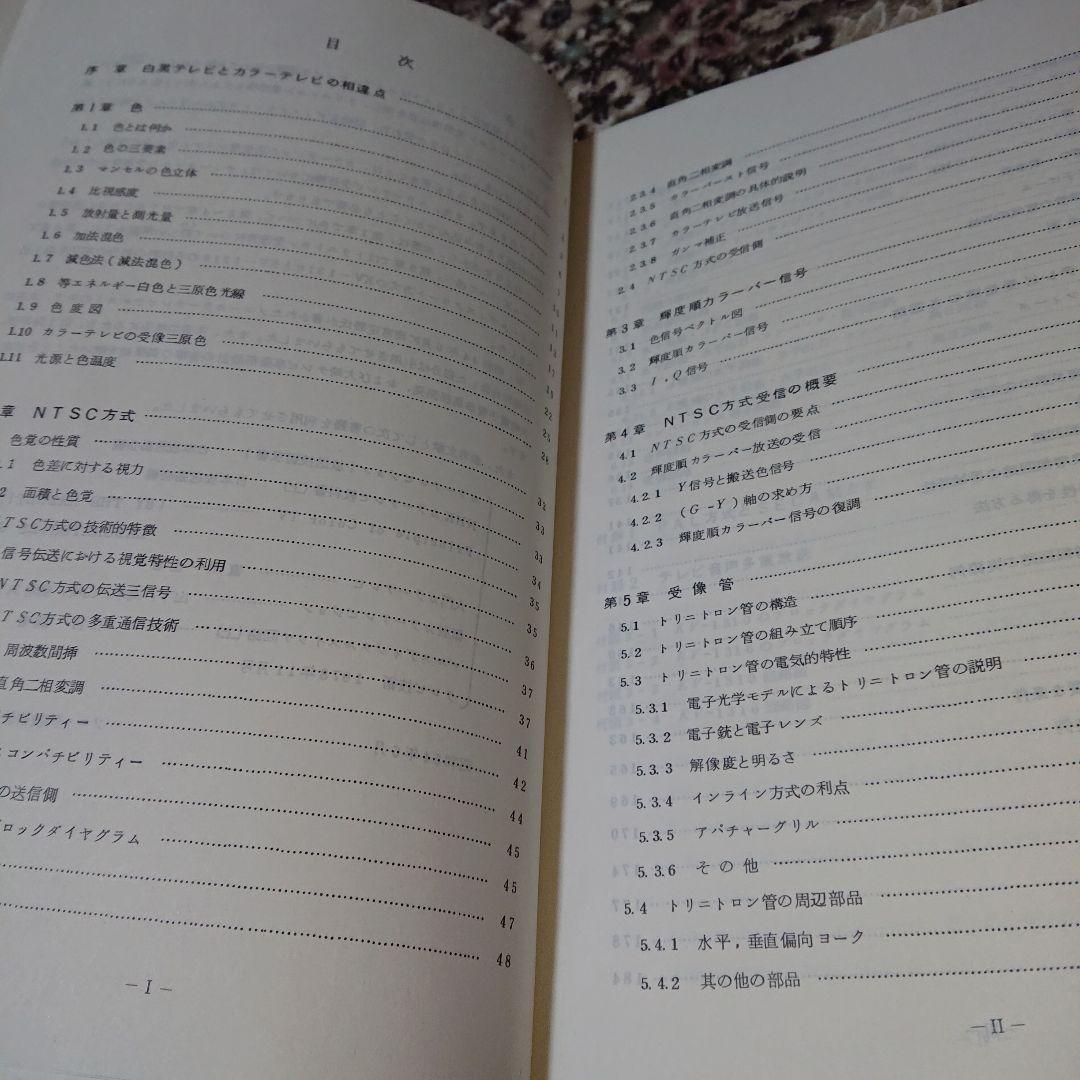 目 次
序 章 白黒テレビとカラーテレビの相違点
第1章 色
1.1 色とは何か
1.2 色の三要素
1.3 マンセルの色立体
1.4 比視感度
1.5 放射量と測光量
1.6 加法混色
1.7 減色法(減法混色)
1.8 等エネルギー白色と三原色光線
1.9 色度図
1.10 カラーテレビの受像三原色
1.11 光源と色温度
章 NTSC方式
色覚の性質
.1 色差に対する視力
2 面積と色覚
TSC方式の技術的特徴
信号伝送における視覚特性の利用
NTSC方式の伝送三信号
TSC方式の多重通信技術
周波数間挿
直角二相変調
チビリティー 41
コンパチビリティー 42
の送信側 44
ブロックダイヤグラム 45
45
47
48
－I－
2.3.4 直角二相変調
2.3.5 カラーバースト信号
2.3.6 直角二相変調の具体的説明
2.3.7 カラーテレビ放送信号
2.3.8 ガンマ補正
2.4 NTSC方式の受信側
第3章 輝度順カラーバー信号
3.1 色信号ベクトル図
3.2 輝度順カラーバー信号
3.3 I,Q信号
第4章 NTSC方式受信の概要
4.1 NTSC方式の受信側の要点
4.2 輝度順カラーバー放送の受信
4.2.1 Y信号と搬送色信号
4.2.2 (G-Y)軸の求め方
4.2.3 輝度順カラーバー信号の復調
第5章 受像管
5.1 トリニトロン管の構造
5.2 トリニトロン管の組み立て順序
5.3 トリニトロン管の電気的特性
5.3.1 電子光学モデルによるトリニトロン管の説明
5.3.2 電子銃と電子レンズ
5.3.3 解像度と明るさ
5.3.4 インライン方式の利点
5.3.5 アパチャーグリル
5.3.6 その他
5.4 トリニトロン管の周辺部品
5.4.1 水平,垂直偏向ヨーク
5.4.2 其の他の部品
－II－